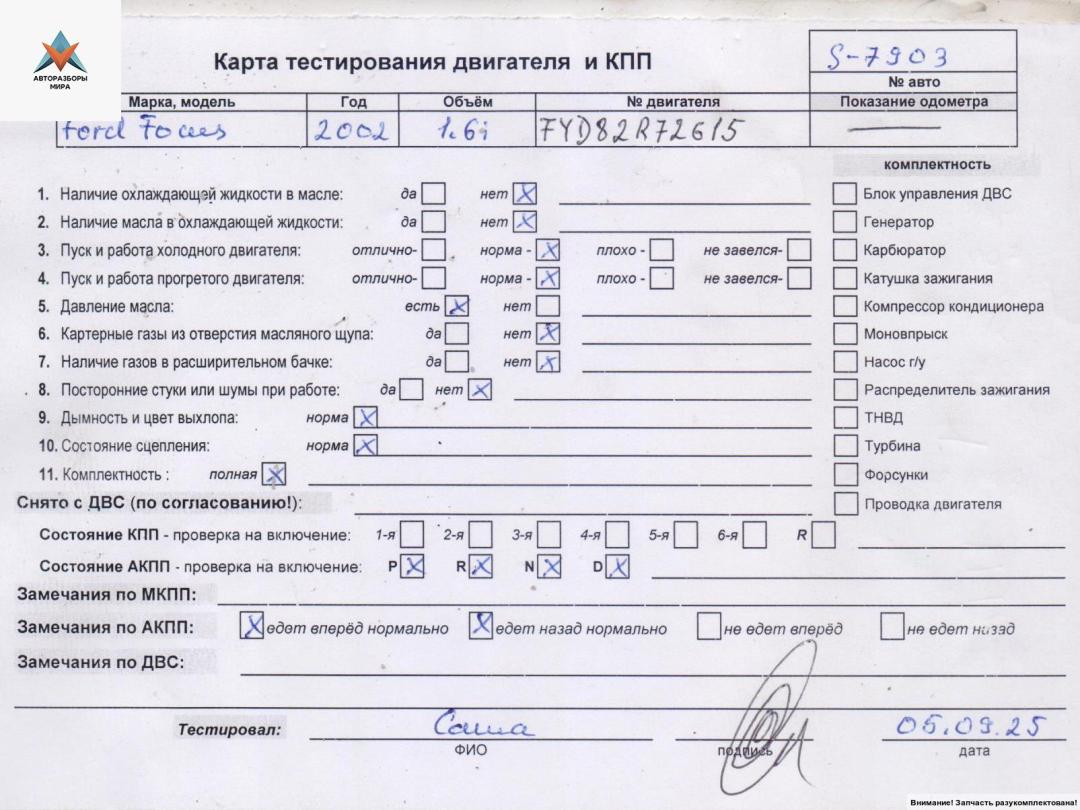 АВТОРАЗБОРЫ
МИРА
Карта тестирования двигателя и КПП
S-7903
№ авто
Марка, модель Год Объём № двигателя Показание одометра
Ford Focus 2002 1.6i FYD82R72615
комплектность
1. Наличие охлаждающей жидкости в масле: да нет X Блок управления ДВС
2. Наличие масла в охлаждающей жидкости: да нет X Генератор
3. Пуск и работа холодного двигателя: отлично- норма - X плохо - не завелся- Карбюратор
4. Пуск и работа прогретого двигателя: отлично- норма - X плохо - не завелся- Катушка зажигания
5. Давление масла: есть X нет Компрессор кондиционера
6. Картерные газы из отверстия масляного щупа: да нет X Моновпрыск
7. Наличие газов в расширительном бачке: да нет X Насос г/у
8. Посторонние стуки или шумы при работе: да нет X Распределитель зажигания
9. Дымность и цвет выхлопа: норма X ТНВД
10. Состояние сцепления: норма X Турбина
11. Комплектность : полная X Форсунки
Снято с ДВС (по согласованию!): Проводка двигателя
Состояние КПП - проверка на включение: 1-я 2-я 3-я 4-я 5-я 6-я R
Состояние АКПП - проверка на включение: P X R X N X D X
Замечания по МКПП:
Замечания по АКПП: X едет вперёд нормально X едет назад нормально не едет вперёд не едет назад
Замечания по ДВС:
Тестировал: Саша 05.09.25
ФИО подпись дата
Внимание! Запчасть разукомплектована!